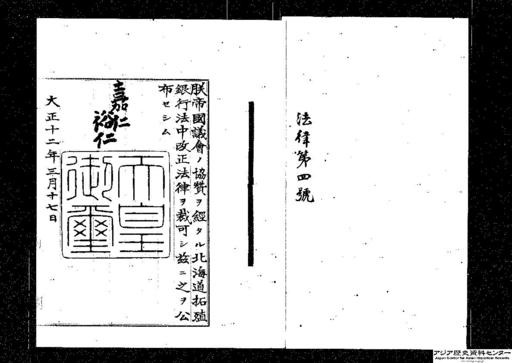 法律第四號
朕帝國議會ノ協贊ヲ經タル北海道拓殖
銀行法中改正法律ヲ裁可シ茲ニ之ヲ公
布セシム
嘉仁
裕仁
天皇
御璽
大正十二年三月十七日
アジア歴史資料センター
Japan Center for Asian Historical Records